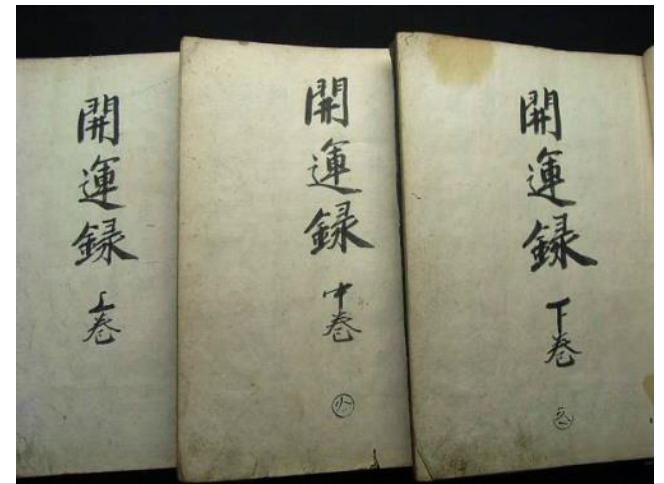 開運録 上巻
開運録 中巻
開運録 下巻